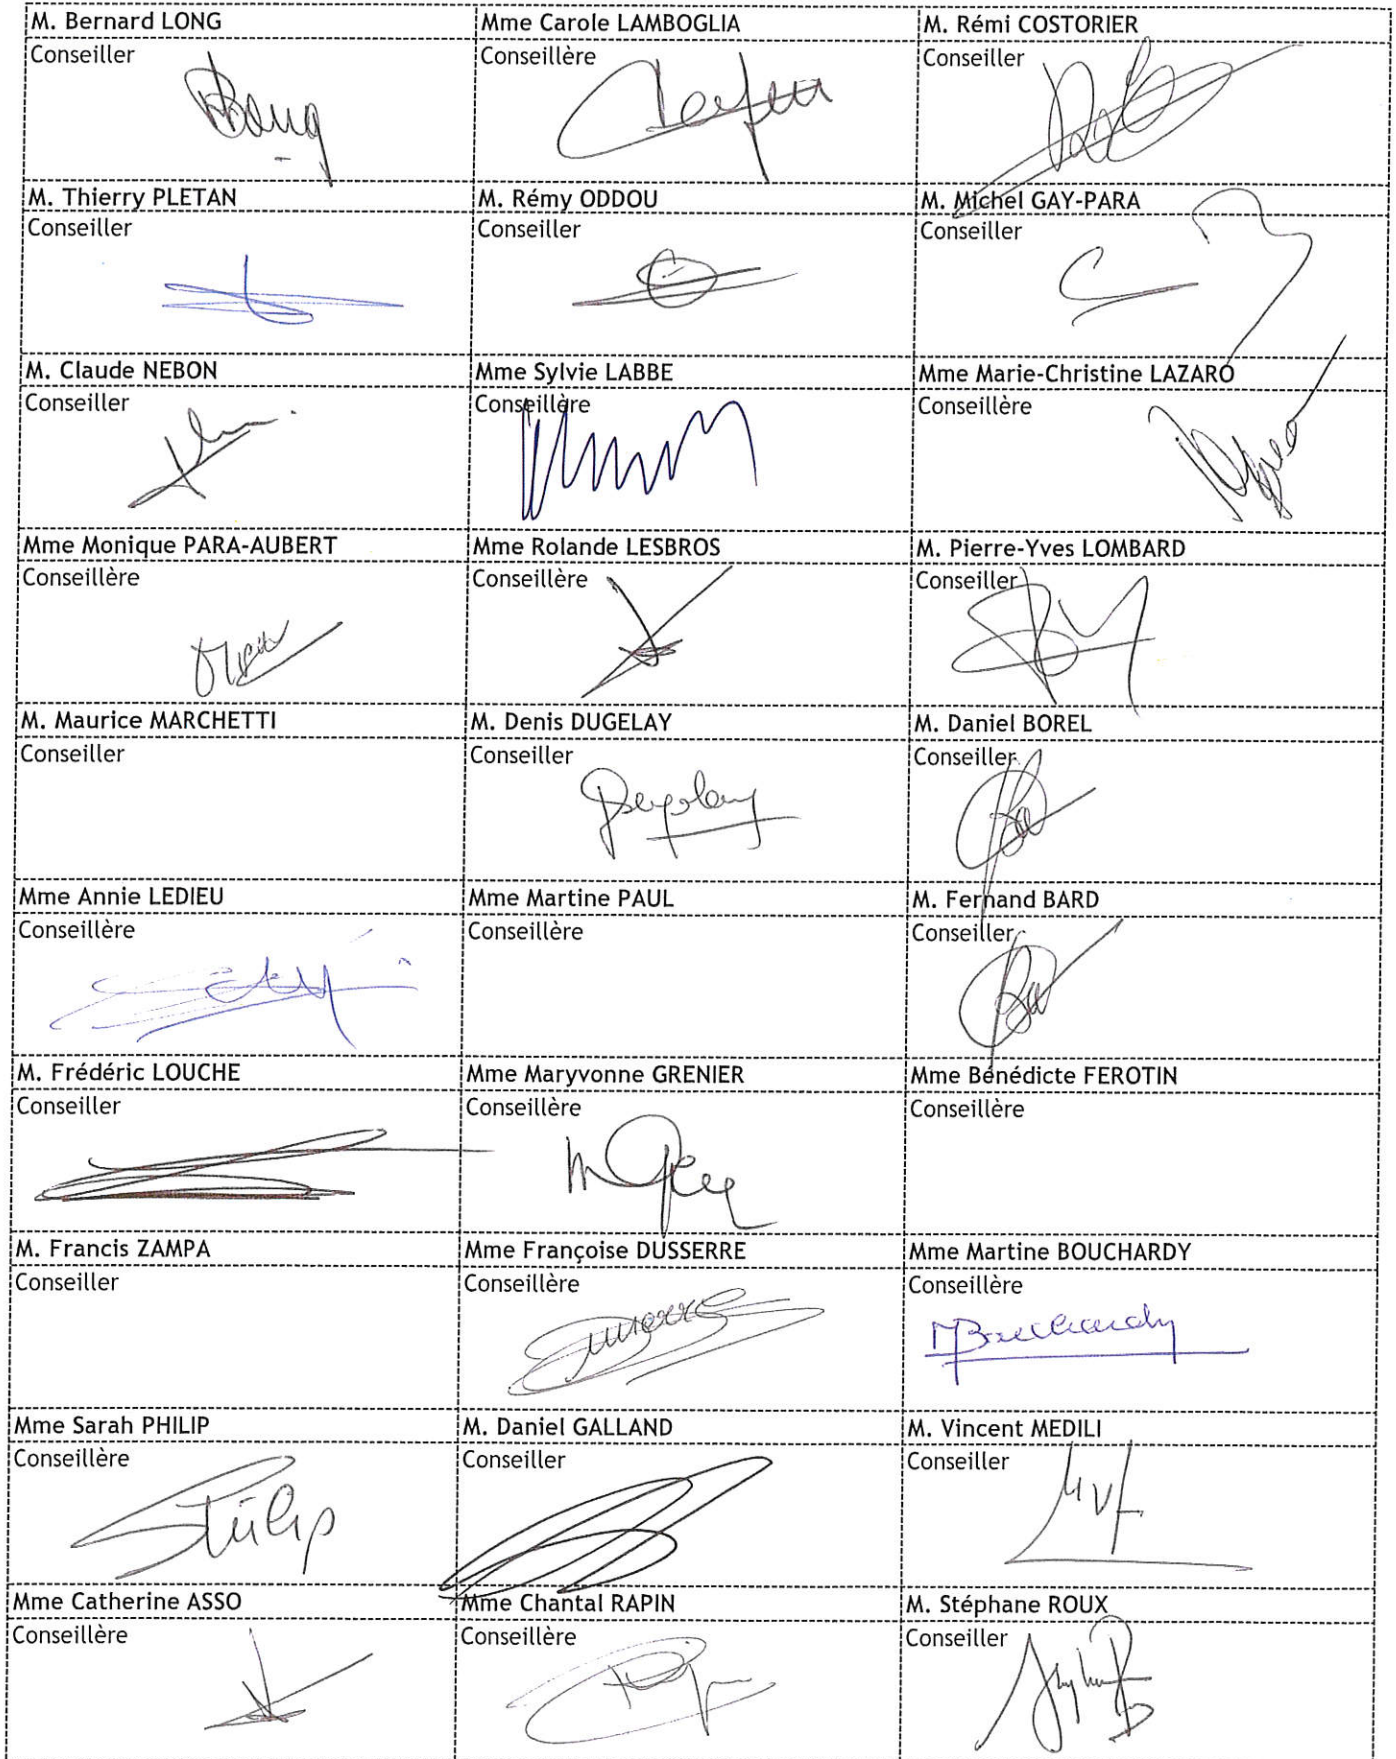 M. Bernard LONG
Mme Carole LAMBOGLIA
M. Rémi COSTORIER
Conseiller
Conseillère
Conseiller
M. Thierry PLETAN
M. Rémy ODDOU
M. Michel GAY-PARA
Conseiller
Conseiller
Conseiller
M. Claude NEBON
Mme Sylvie LABBE
Mme Marie-Christine LAZARO
Conseiller
Conseillère
Conseillère
Mme Monique PARA-AUBERT
Mme Rolande LESBROS
M. Pierre-Yves LOMBARD
Conseillère
Conseillère
Conseiller
M. Maurice MARCHETTI
M. Denis DUGELAY
M. Daniel BOREL
Conseiller
Conseiller
Conseiller
Mme Annie LEDIEU
Mme Martine PAUL
M. Fernand BARD
Conseillère
Conseillère
Conseiller
M. Frédéric LOUCHE
Mme Maryvonne GRENIER
Mme Bénédicte FEROTIN
Conseiller
Conseillère
Conseillère
M. Francis ZAMPA
Mme Françoise DUSSERRE
Mme Martine BOUCHARDY
Conseiller
Conseillère
Conseillère
MBouchardy
Mme Sarah PHILIP
M. Daniel GALLAND
M. Vincent MEDILI
Conseillère
Conseiller
Conseiller
Mme Catherine ASSO
Mme Chantal RAPIN
M. Stéphane ROUX
Conseillère
Conseillère
Conseiller